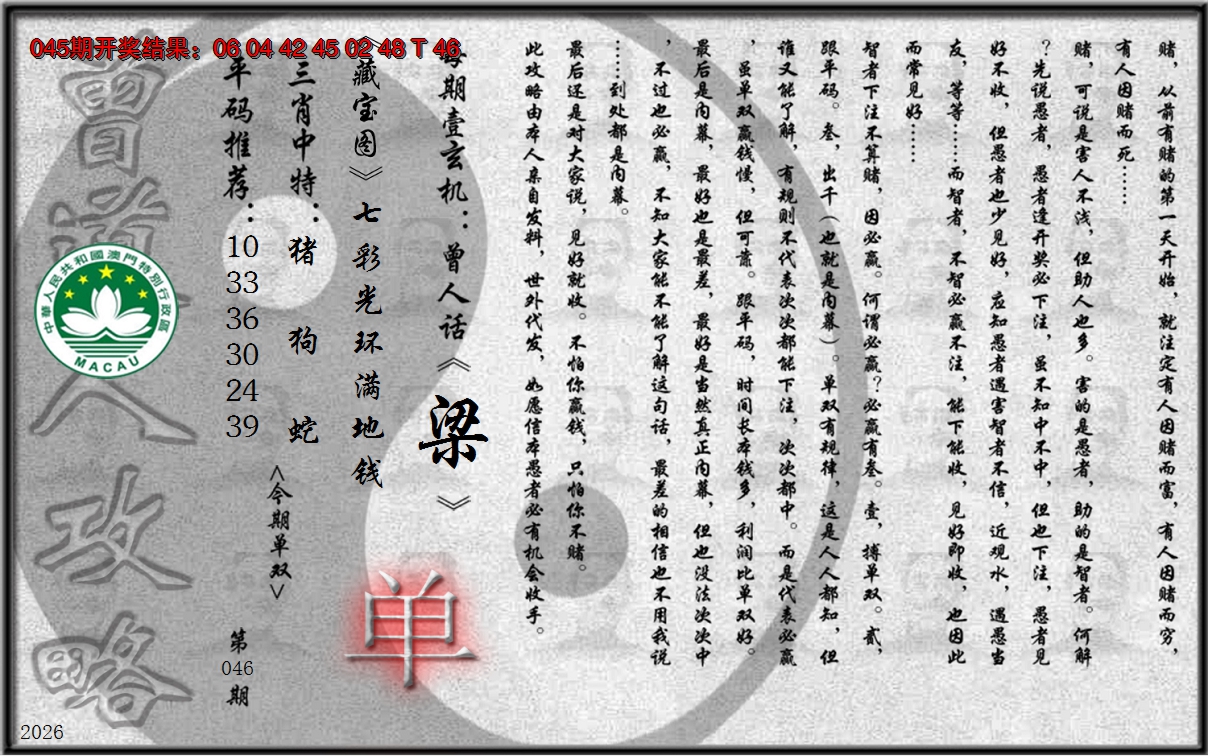 045期开奖结果：06 04 42 45 02 48 T 46
赌，从前有赌的第一天开始，就注定有人因赌而富，有人因赌而穷，
有人因赌而死……
赌，可说是害人不浅，但助人也多。害的是愚者，助的是智者。何解
？先说愚者，愚者逢开奖必下注，虽不知中不中，但也下注，愚者见
好不收，但愚者也少见好，应知愚者遇害智者不信，近观水，遇愚当
友，等等……而智者，不智必赢不注，能下能收，见好即收，也因此
而常见好……
智者下注不算赌，因必赢。何谓必赢？必赢有叁。壹，搏单双。贰，
跟平码。叁，出千（也就是内幕）。单双有规律，这是人人都知，但
谁又能了解，有规则不代表次次都能下注，次次都中。而是代表必赢
，虽单双赢钱慢，但可靠。跟平码，时间长本钱多，利润比单双好。
最后是内幕，最好也是最差，最好是当然真正内幕，但也没法次次中
，不过也必赢，不知大家能不能了解这句话，最差的相信也不用我说
……到处都是内幕。
最后还是对大家说，见好就收。不怕你赢钱，只怕你不赌。
此攻略由本人亲自发料，世外代发，如愿信本愚者必有机会收手。
每期壹玄机：曾人话《梁》
《藏宝图》七彩光环满地钱
单
三肖中特：猪 狗 蛇
<今期单双>
平码推荐：10 33 36 30 24 39
第046期
曾道人攻略
中華人民共和國澳門特別行政區
MACAU
2026